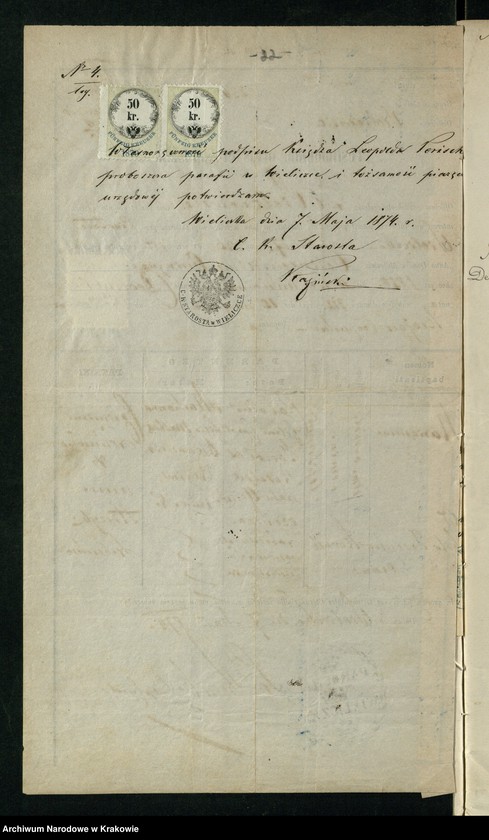 -22-
No 4.
leg.
50
kr.
FÜNFZIG KREUZER
50
kr.
FÜNFZIG KREUZER
podpisu Księdza Leopolda
proboszcza parafii w Wieliczce i tożsamość pieczęci
urzędowéj potwierdzam.
Wieliczka dnia 7. Maja 1874. r.
C. K. Starosta
C.K. STAROSTA W WIELICZCE
Archiwum Narodowe w Krakowie